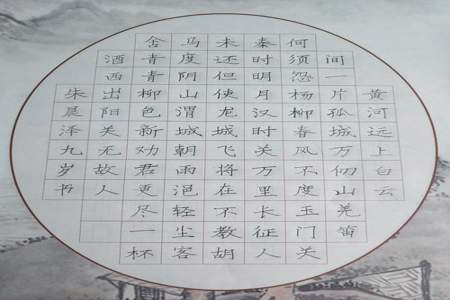 黄河远上白云
间一片孤城万仞山羌笛
何须怨杨柳春风不度玉门关
秦时明月汉时关万里长征人
未还但使龙城飞将在不教胡
马度阴山渭城朝雨浥轻尘客
舍青青柳色新劝君更尽一杯
酒西出阳关无故人
朱晨泽九岁书